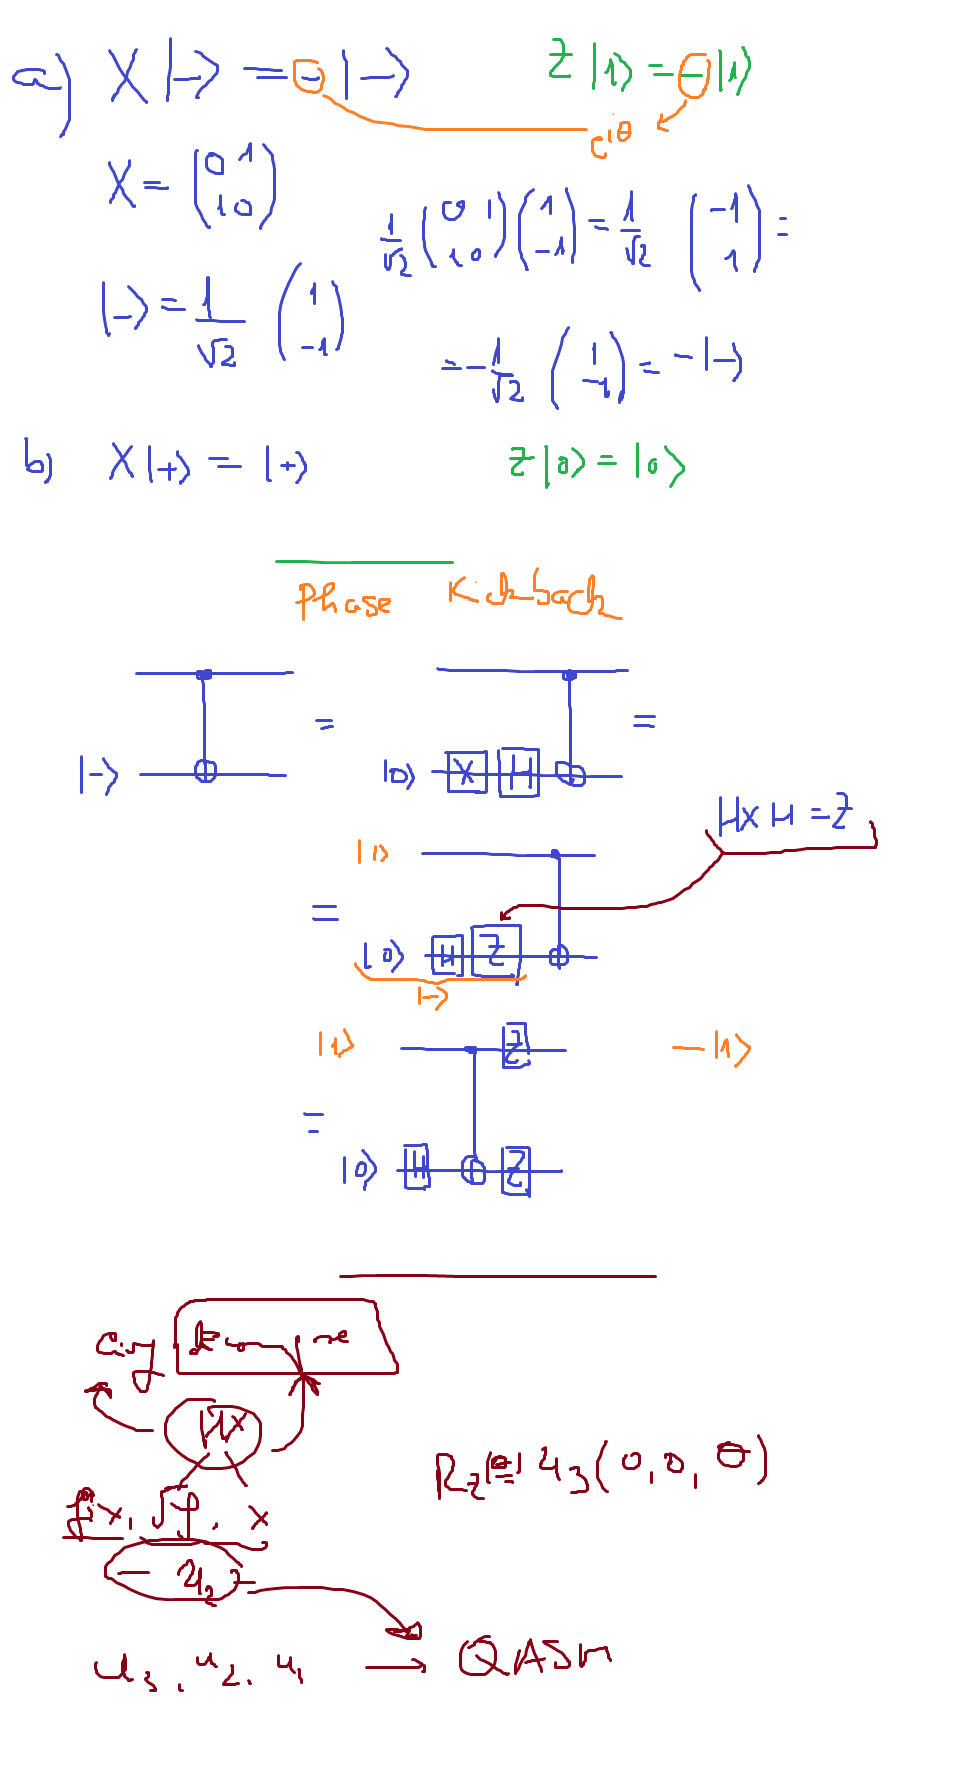 a) X|−⟩ = −|−⟩ Z|1⟩ = −|1⟩
e^{iθ}
X = (0 1
1 0)
1/√2 (0 1
1 0) (1
−1) = 1/√2 (−1
1) =
|−⟩ = 1/√2 (1
−1)
= −1/√2 (1
−1) = −|−⟩
b) X|+⟩ = |+⟩ Z|0⟩ = |0⟩
Phase Kickback
= =
|−⟩ |0⟩ X H
HXH = Z
|1⟩
=
|0⟩ H Z
|−⟩
|1⟩ Z −|1⟩
=
|0⟩ H Z
HX
R_z(θ) = u3(0,0,θ)
x
− u2 −
u3, u2, u1 → QASM